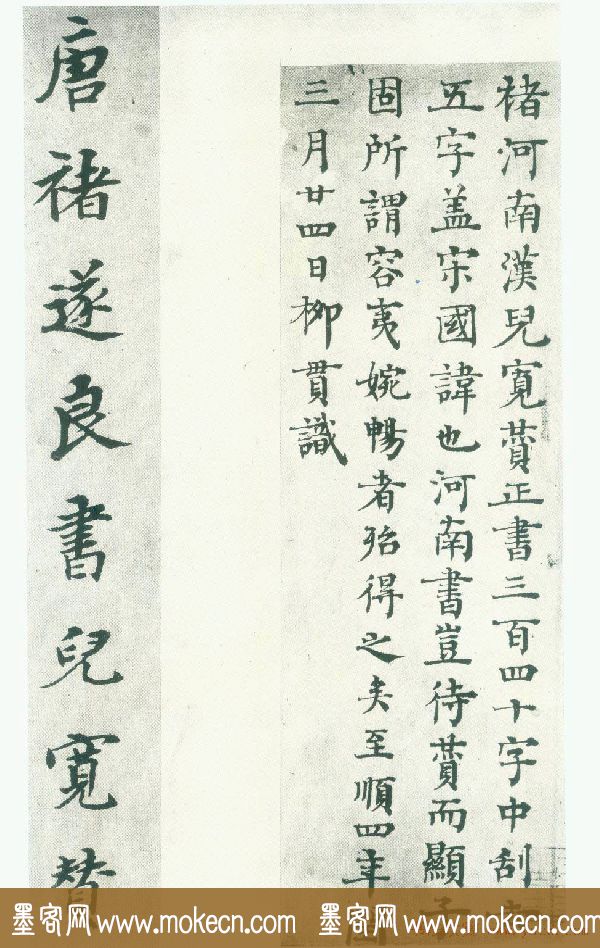 褚河南漢兒寬贊正書三百四十字中刮
五字盖宋國諱也河南書豈待贊而顯
固所謂容夷婉暢者殆得之矣至順四年閏
三月廿四日柳貫識
唐褚遂良書兒寬贊
墨客网 www.mokecn.com 墨客网 www.mokecn.com